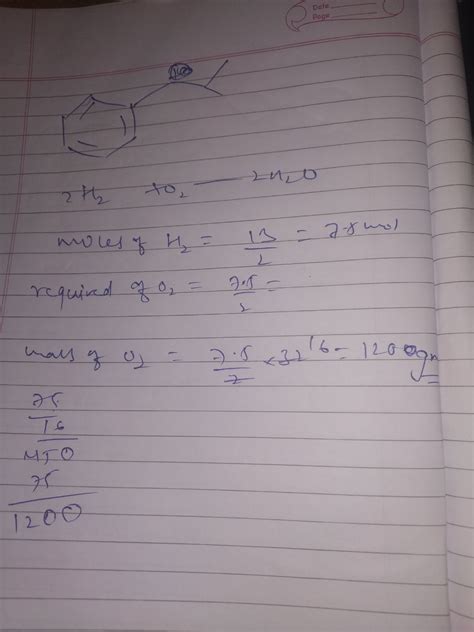 Date
Page
2H₂ + O₂ — 2H₂O
moles of H₂ = 15/2 = 7.5 mol
required of O₂ = 7.5/2 =
mass of O₂ = 7.5/2 × 32 16 = 1200gm
75
16
450
75
1200